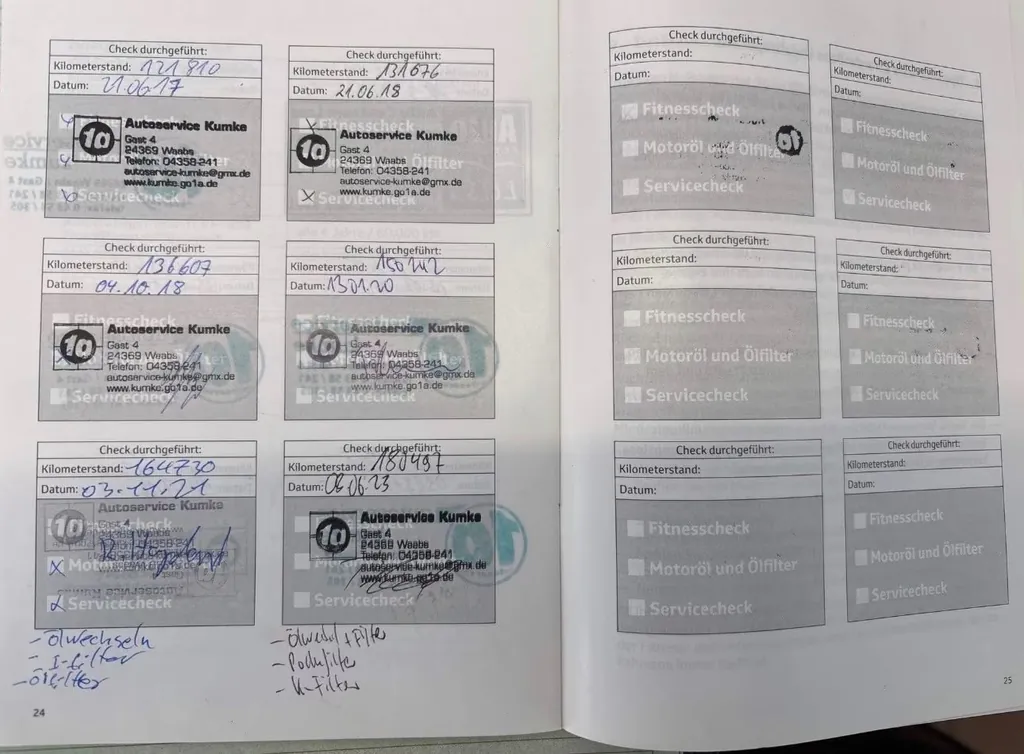 Check durchgeführt:
Kilometerstand: 121 910
Datum: 21.06.17
Autoservice Kumke
Gast 4
24369 Waabs
Telefon: 04358-241
autoservice-kumke@gmx.de
www.kumke.go1a.de
Servicecheck
Check durchgeführt:
Kilometerstand: 131676
Datum: 21.06.18
Fitnesscheck
Autoservice Kumke
Gast 4
24369 Waabs
Ölfilter
Telefon: 04358-241
autoservice-kumke@gmx.de
www.kumke.go1a.de
Servicecheck
Check durchgeführt:
Kilometerstand: 136607
Datum: 04.10.18
Fitnesscheck
Autoservice Kumke
Gast 4
24369 Waabs
Telefon: 04358-241
autoservice-kumke@gmx.de
www.kumke.go1a.de
Servicecheck
Check durchgeführt:
Kilometerstand:
Datum: 13.01.20
Fitnesscheck
Autoservice Kumke
Gast 4
24369 Waabs
Telefon: 04358-241
autoservice-kumke@gmx.de
www.kumke.go1a.de
Servicecheck
Check durchgeführt:
Kilometerstand: 164730
Datum: 03.11.21
Autoservice Kumke
Gast 4
Servicecheck
- Ölwechseln
- I-Filter
- Ölfilter
Check durchgeführt:
Kilometerstand: 180497
Datum: 06.23
Autoservice Kumke
Gast 4
24369 Waabs
Telefon: 04358-241
autoservice-kumke@gmx.de
www.kumke.go1a.de
Servicecheck
- Ölwechsel + Filter
- Pollenfilter
- K-Filter
24
Check durchgeführt:
Kilometerstand:
Datum:
Fitnesscheck
Motoröl und Ölfilter
Servicecheck
Check durchgeführt:
Kilometerstand:
Datum:
Fitnesscheck
Motoröl und Ölfilter
Servicecheck
Check durchgeführt:
Kilometerstand:
Datum:
Fitnesscheck
Motoröl und Ölfilter
Servicecheck
Check durchgeführt:
Kilometerstand:
Datum:
Fitnesscheck
Motoröl und Ölfilter
Servicecheck
Check durchgeführt:
Kilometerstand:
Datum:
Fitnesscheck
Motoröl und Ölfilter
Servicecheck
Check durchgeführt:
Kilometerstand:
Datum:
Fitnesscheck
Motoröl und Ölfilter
Servicecheck
25